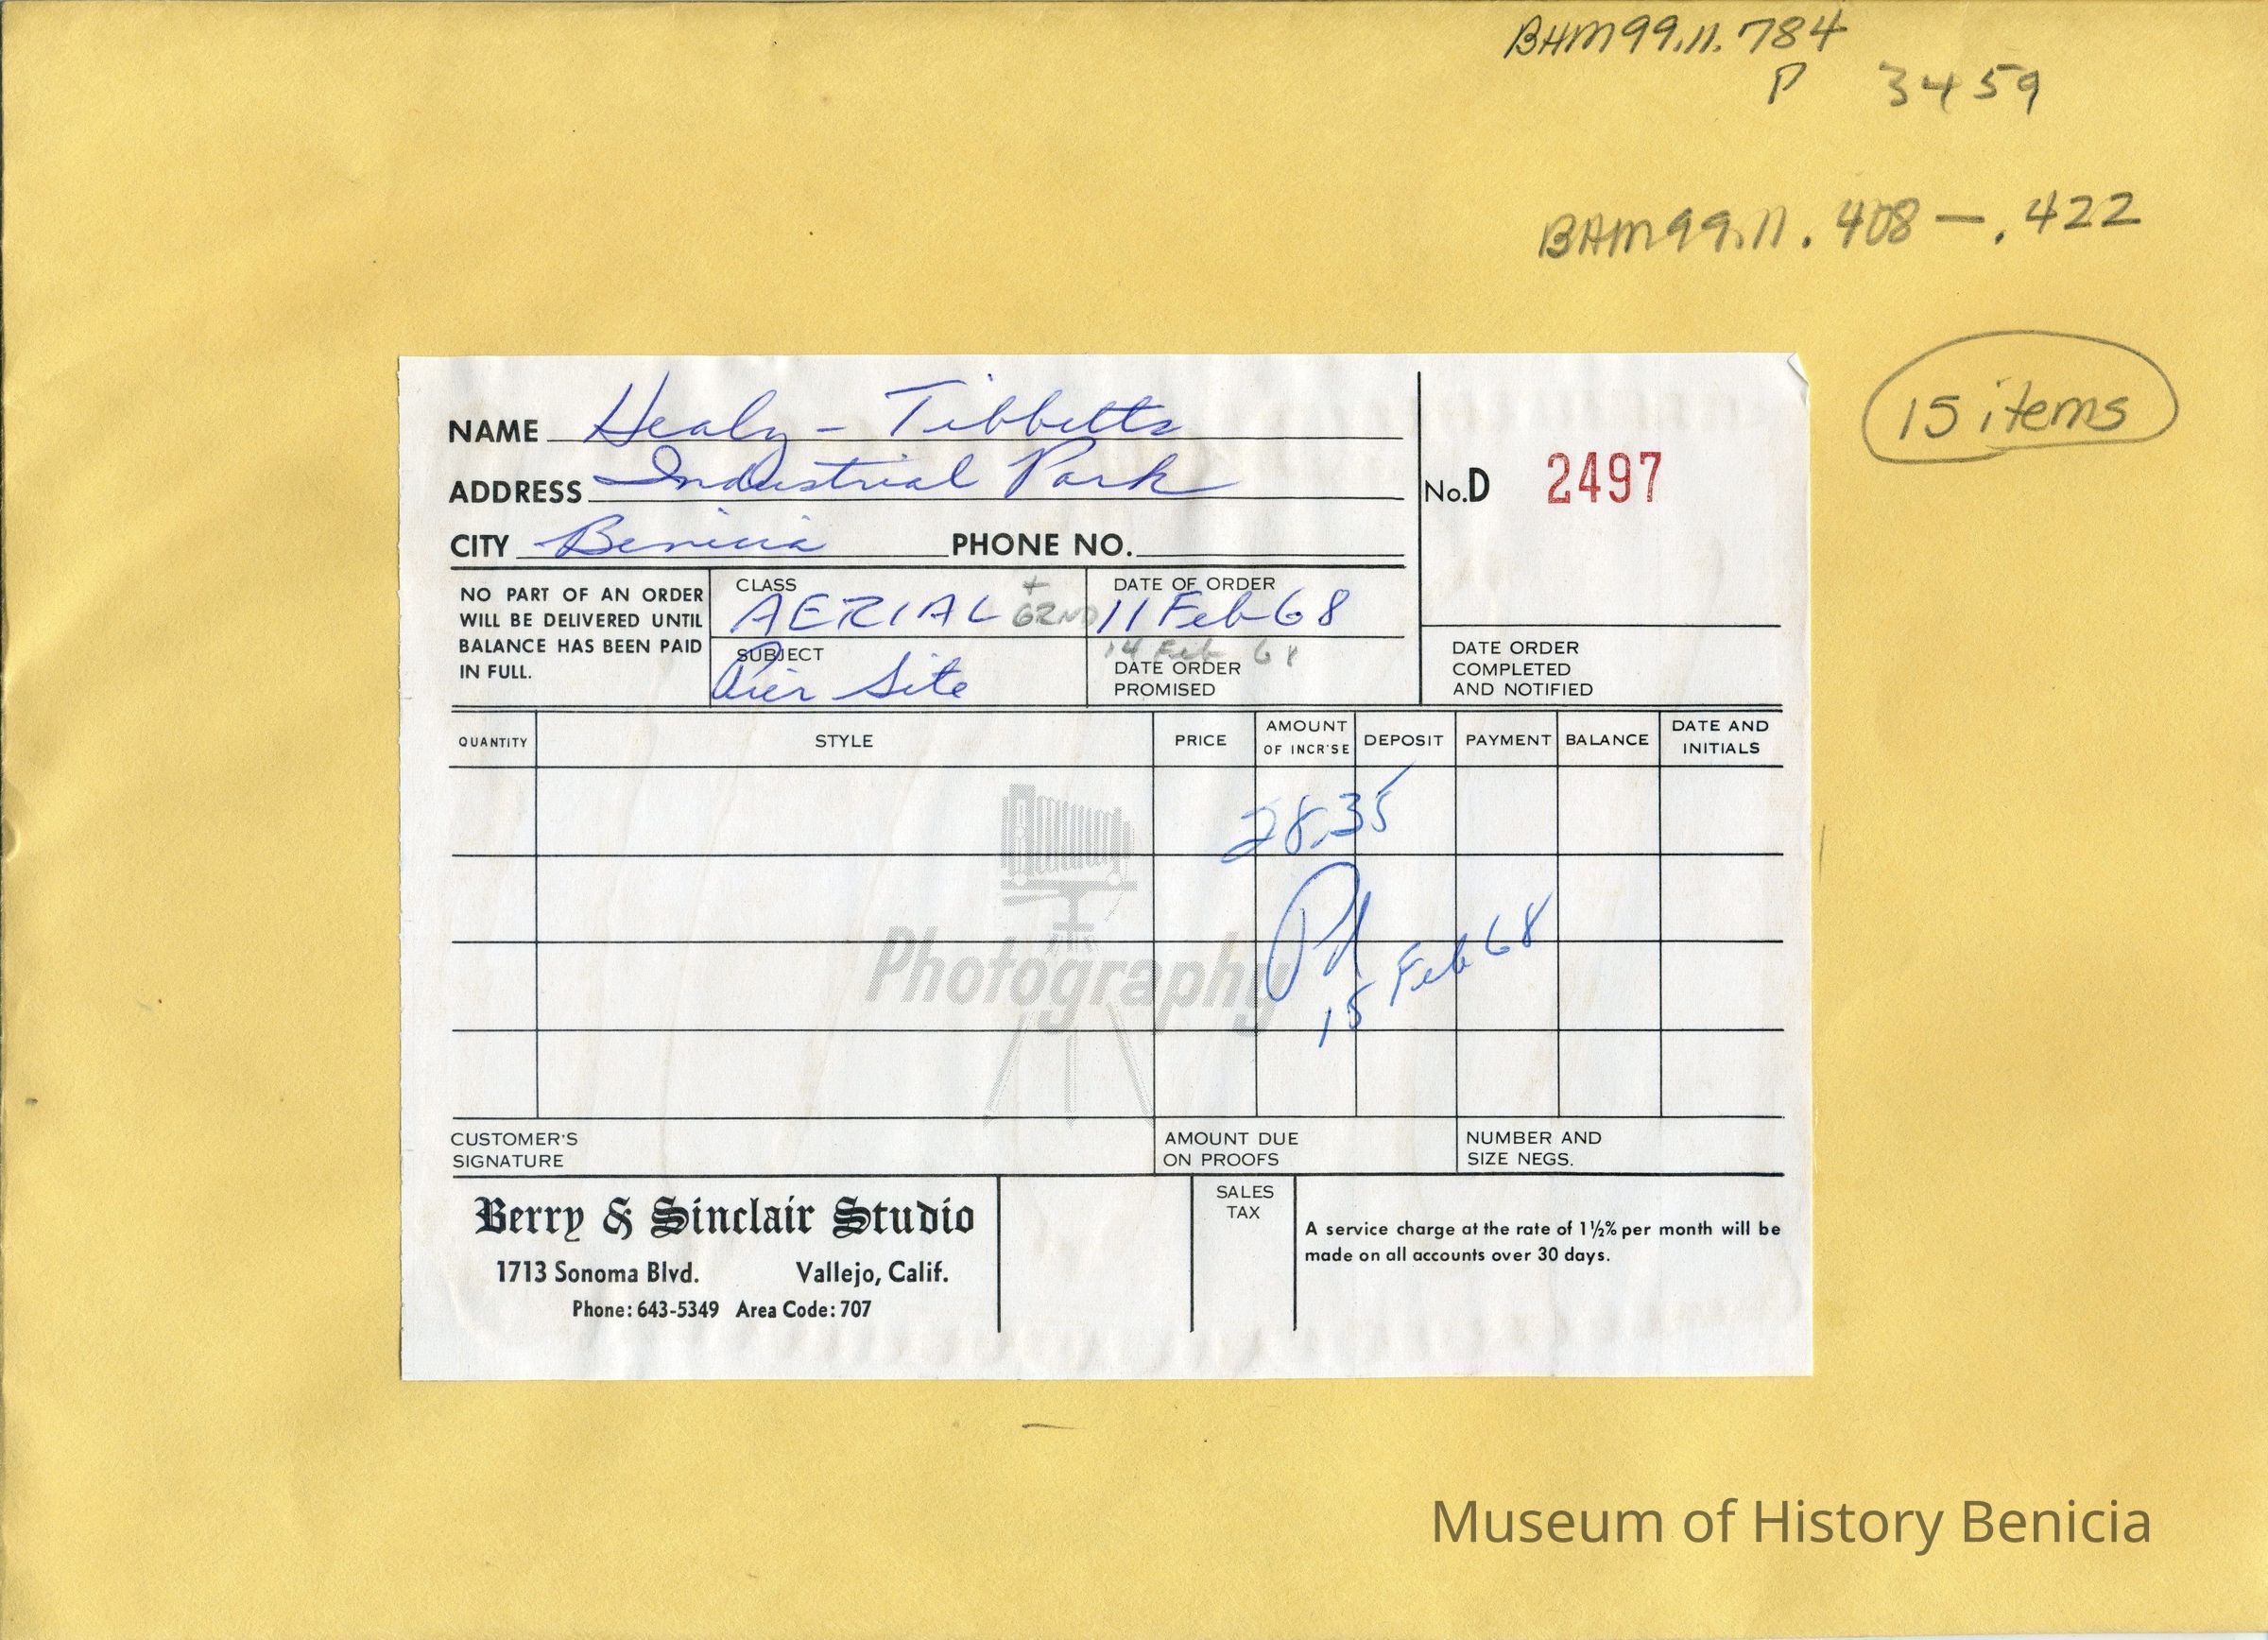 BHM99.11.784
P 3459
BHM99.11.408 — .422
15 items
NAME Healy - Tibbetts
ADDRESS Industrial Park
CITY Benicia PHONE NO.
No.D 2497
NO PART OF AN ORDER
WILL BE DELIVERED UNTIL
BALANCE HAS BEEN PAID
IN FULL.
CLASS
AERIAL + GRND
SUBJECT
Pier Site
DATE OF ORDER
11 Feb 68
14 Feb 68
DATE ORDER
PROMISED
DATE ORDER
COMPLETED
AND NOTIFIED
QUANTITY STYLE PRICE AMOUNT OF INCR'SE DEPOSIT PAYMENT BALANCE DATE AND INITIALS
28.35
Pd
15 Feb 68
Photography
CUSTOMER'S
SIGNATURE
AMOUNT DUE
ON PROOFS
NUMBER AND
SIZE NEGS.
Berry & Sinclair Studio
1713 Sonoma Blvd. Vallejo, Calif.
Phone: 643-5349 Area Code: 707
SALES
TAX
A service charge at the rate of 1½% per month will be
made on all accounts over 30 days.
Museum of History Benicia